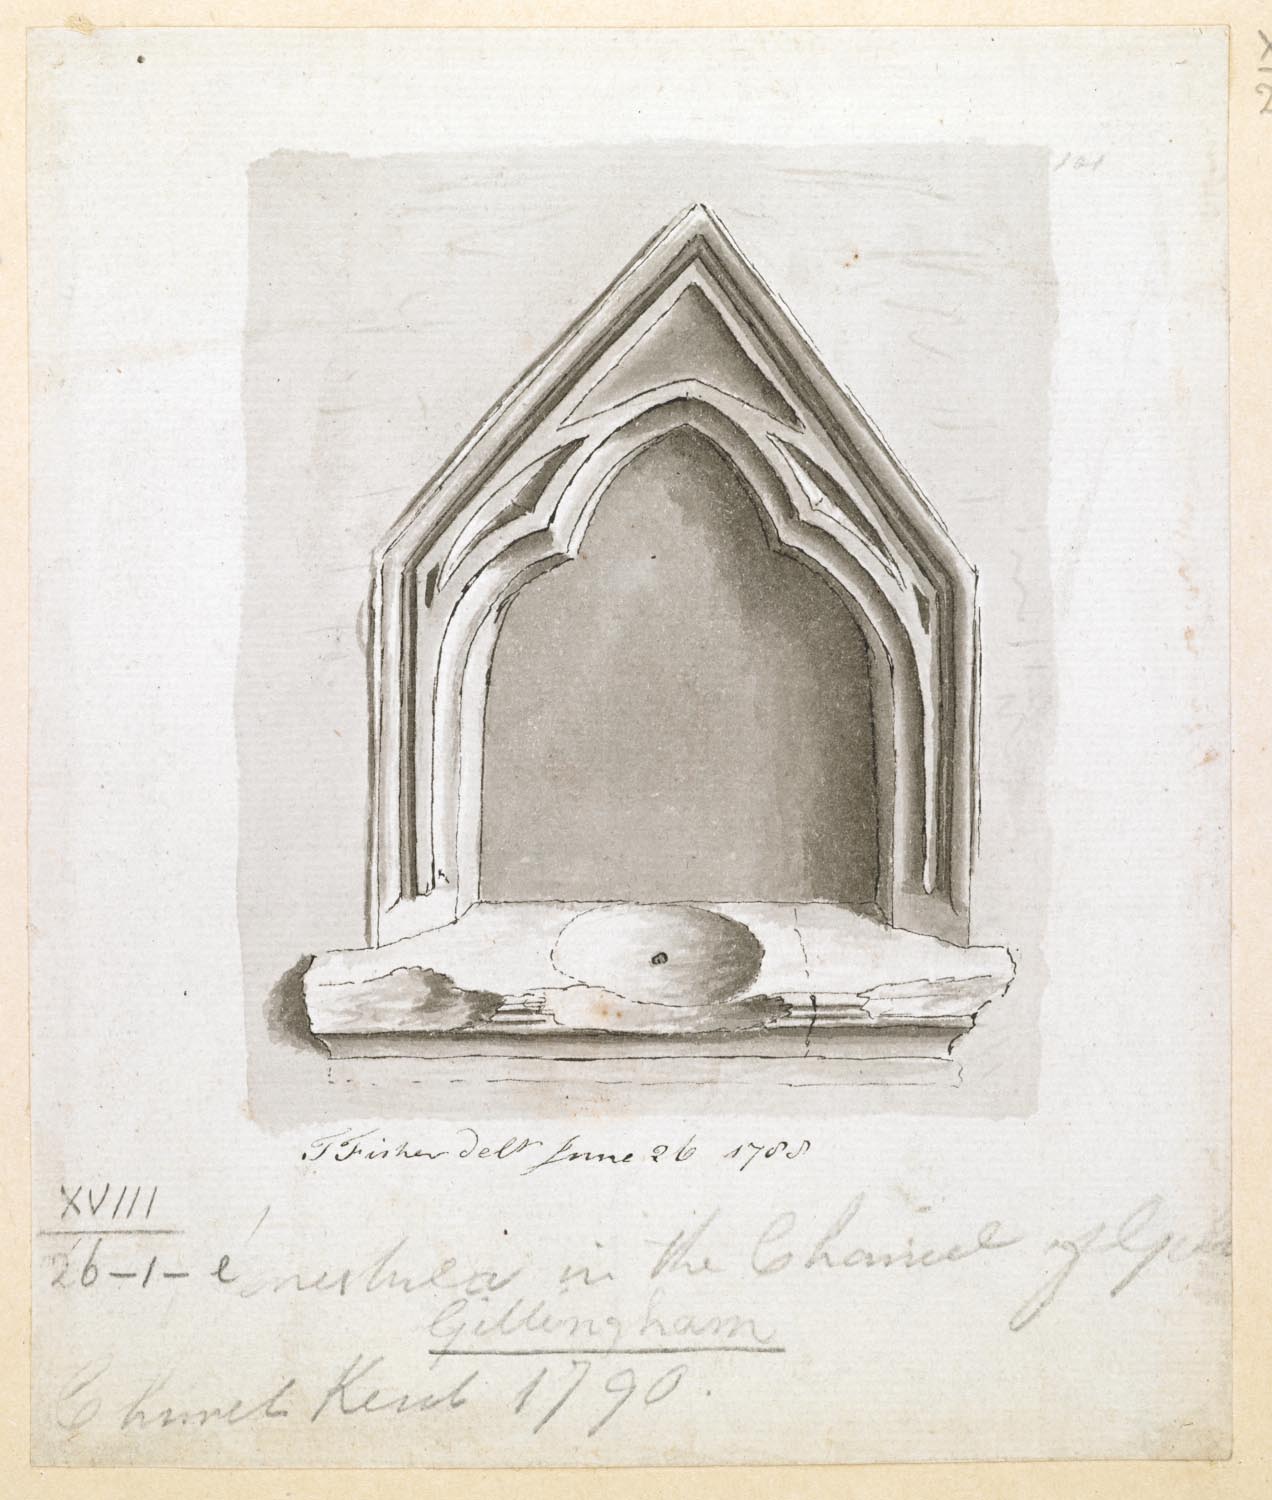 121
T Fisher Delt June 26 1788
XVIII
26-1-e
in the Chancel of
Gillingham
Church Kent 1790.